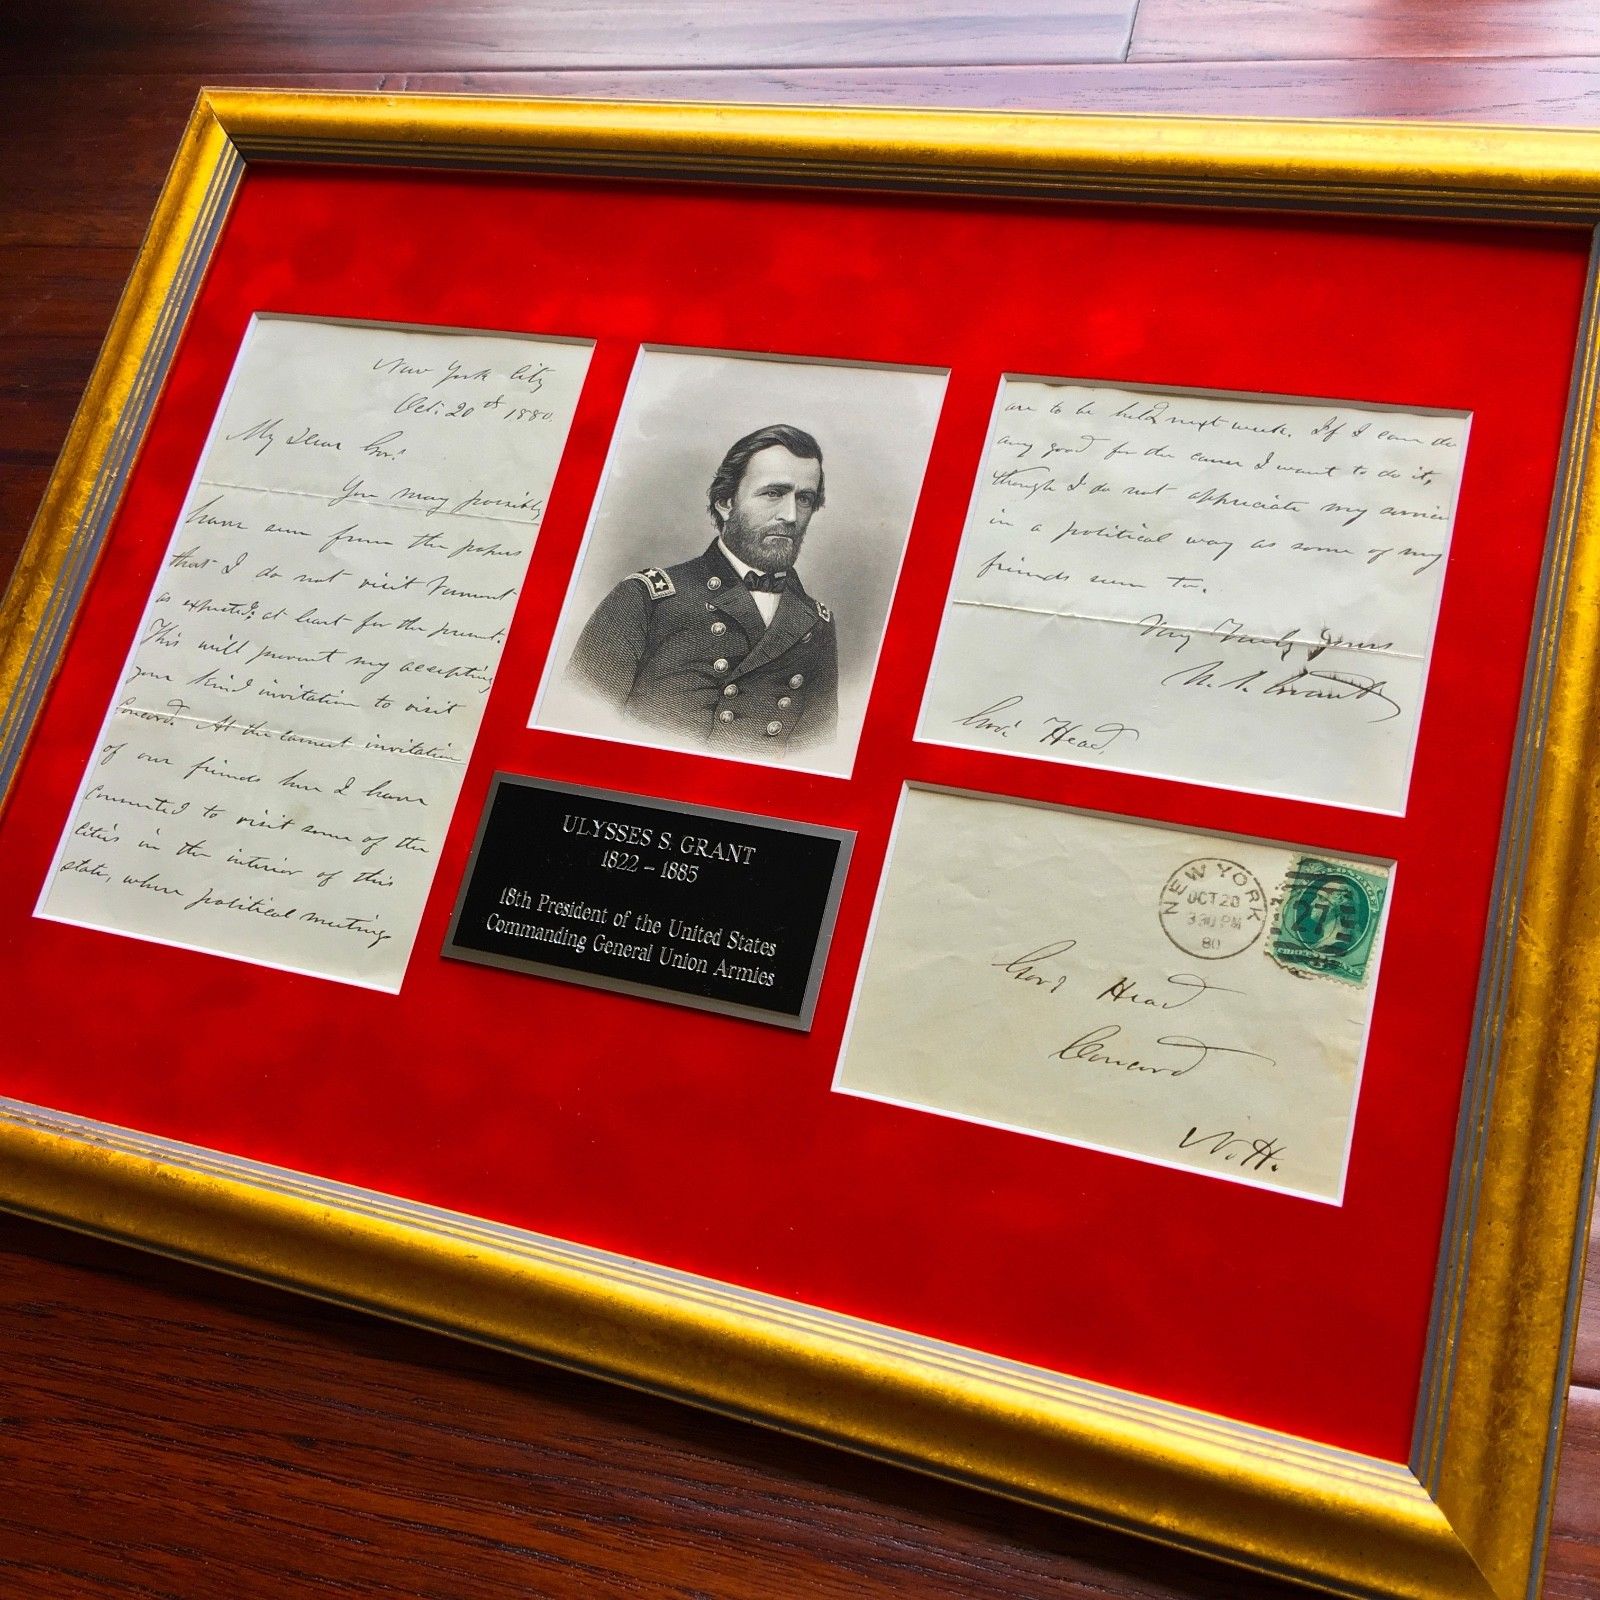 New York City
Oct. 20th 1880.
My Dear Gov.
You may possibly
have seen from the papers
that I do not visit Vermont
as expected, at least for the present.
This will prevent my accepting
your kind invitation to visit
Concord. At the earnest invitation
of our friends here I have
consented to visit some of the
Cities in the interior of this
state, where political meetings
are to be held next week. If I can do
any good for the cause I want to do it,
though I do not appreciate my service
in a political way as some of my
friends seem to.
Very Truly Yours
U. S. Grant
Gov. Head,
ULYSSES S. GRANT
1822 – 1885
18th President of the United States
Commanding General Union Armies
NEW YORK
OCT 20
330 PM
80
27
Gov. Head
Concord
N. H.